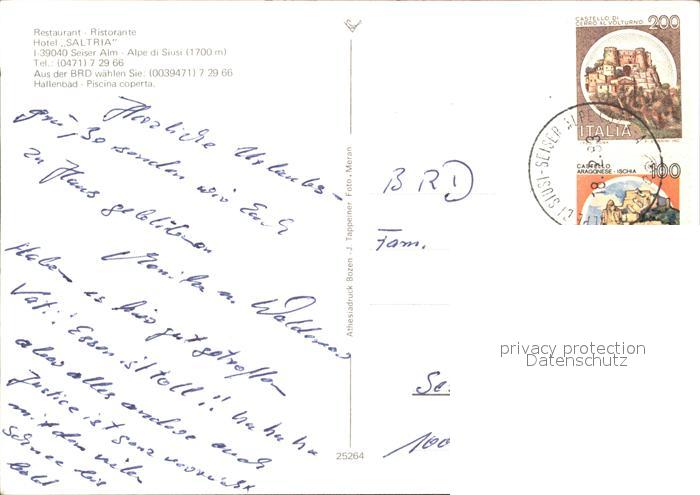 Restaurant - Ristorante
Hotel „SALTRIA"
I-39040 Seiser Alm - Alpe di Siusi (1700 m)
Tel.: (0471) 7 29 66
Aus der BRD wählen Sie: (0039471) 7 29 66
Hallenbad - Piscina coperta.
Herzliche Urlaubs-
grüße senden wir Euch
zu Haus gebliebenen
Monika u.
Haben es hier gut getroffen
Vati: Essen ist toll!! ha ha ha
aber alles andere auch
Justice ist ganz verrückt
mit dem vielen
Schnee bis
bald
Athesiadruck Bozen - J. Tappeiner Foto, Meran
25264
CASTELLO DI
CERRO AL VOLTURNO
200
ITALIA
CASTELLO
ARAGONESE - ISCHIA
100
BRD
Fam.
privacy protection
Datenschutz